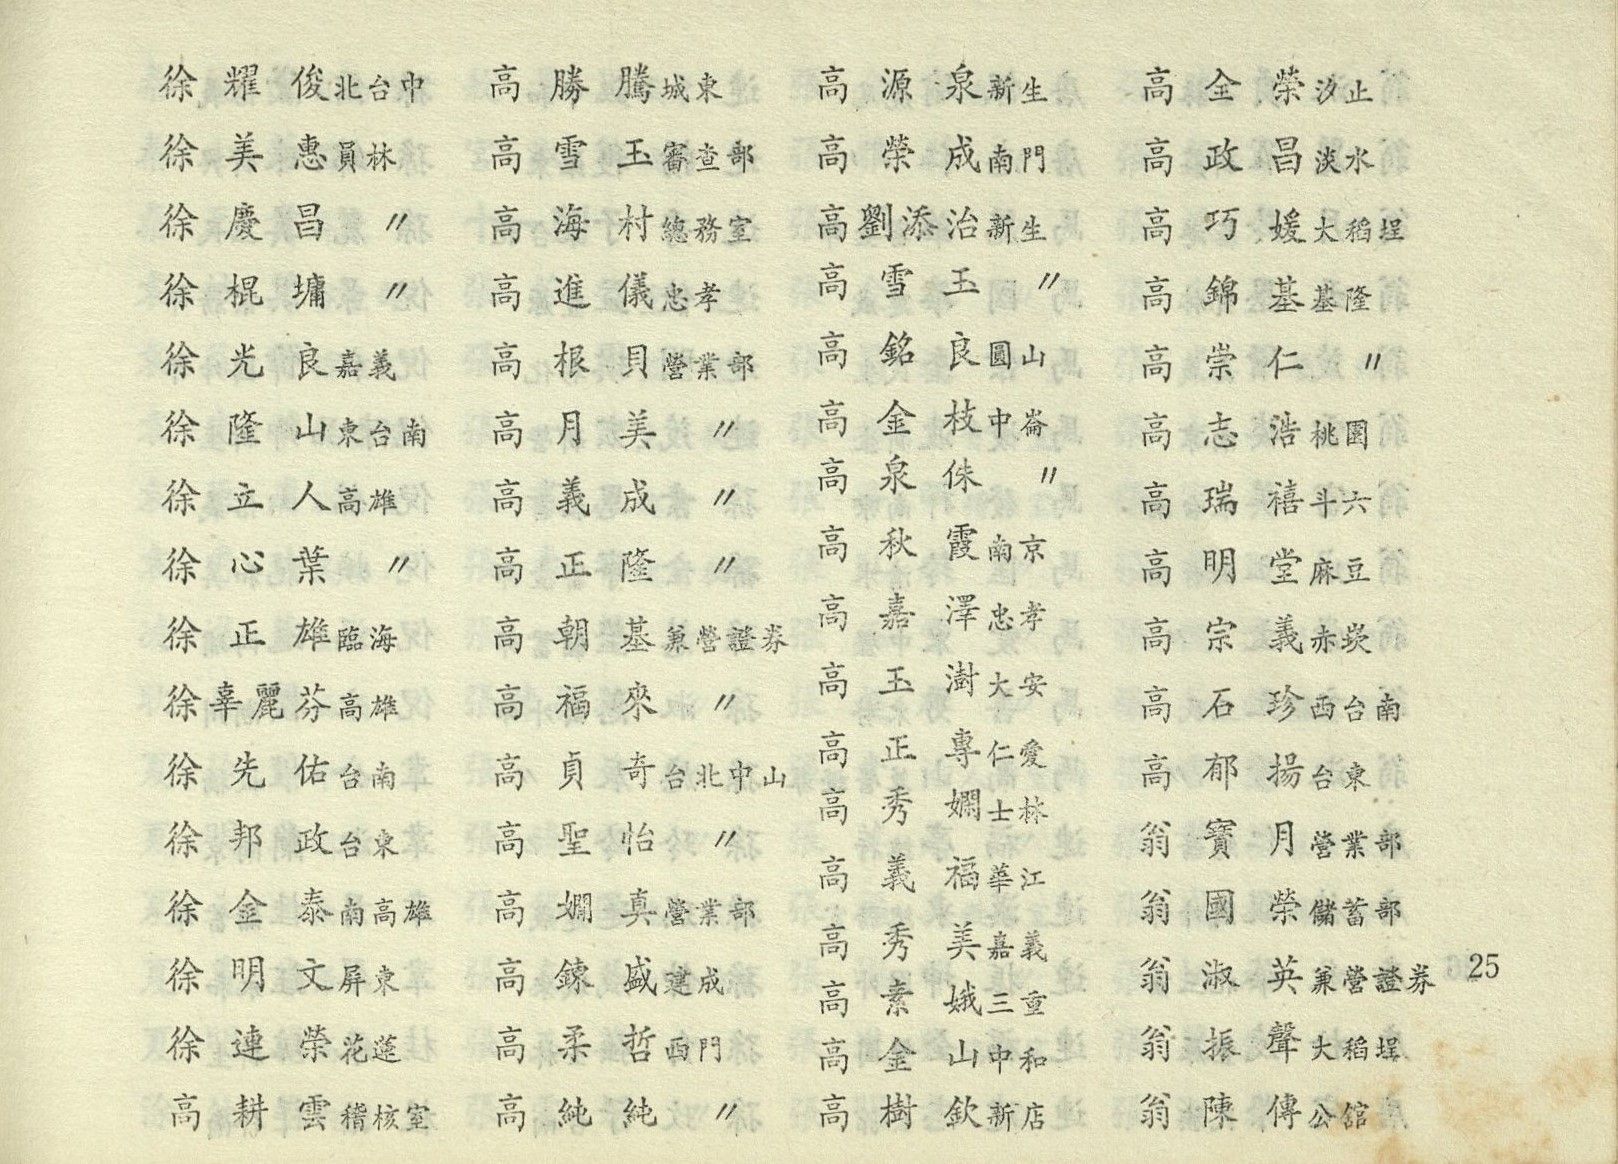 徐耀俊北台中
徐美惠員林
徐慶昌〃
徐棍墉〃
徐光良嘉義
徐隆山東台南
徐立人高雄
徐心葉〃
徐正雄臨海
徐辜麗芬高雄
徐先佑台南
徐邦政台東
徐金泰南高雄
徐明文屏東
徐連榮花蓮
高耕雲稽核室
高勝騰城東
高雪玉審查部
高海村總務室
高進儀忠孝
高根貝營業部
高月美〃
高義成〃
高正隆〃
高朝基兼營證券
高福來〃
高貞奇台北中山
高聖怡〃
高嫻真營業部
高鍊盛建成
高柔哲西門
高純純〃
高源泉新生
高榮成南門
高劉添治新生
高雪玉〃
高銘良圓山
高金枝中崙
高泉侏〃
高秋霞南京
高嘉澤忠孝
高玉澍大安
高正專仁愛
高秀嫻士林
高義福華江
高秀美嘉義
高素娥三重
高金山中和
高樹欽新店
高全榮汐止
高政昌淡水
高巧媛大稻埕
高錦基基隆
高崇仁〃
高志浩桃園
高瑞禧斗六
高明堂麻豆
高宗義赤崁
高石珍西台南
高郁揚台東
翁寶月營業部
翁國榮儲蓄部
翁淑英兼營證券
翁振聲大稻埕
翁陳傳公舘
25